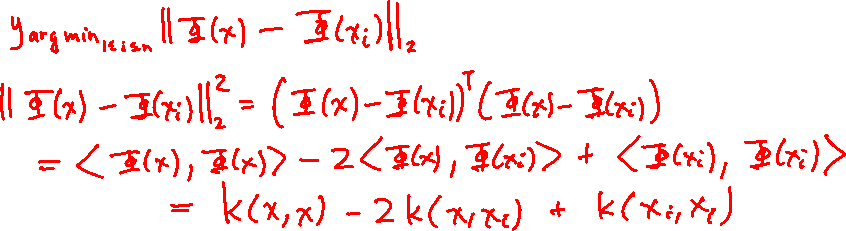 y_{arg min_{1≤i≤n}} ‖Φ(x) − Φ(x_i)‖_2
‖Φ(x) − Φ(x_i)‖_2^2 = (Φ(x) − Φ(x_i))^T (Φ(x) − Φ(x_i))
= <Φ(x), Φ(x)> − 2<Φ(x), Φ(x_i)> + <Φ(x_i), Φ(x_i)>
= k(x,x) − 2k(x,x_i) + k(x_i,x_i)